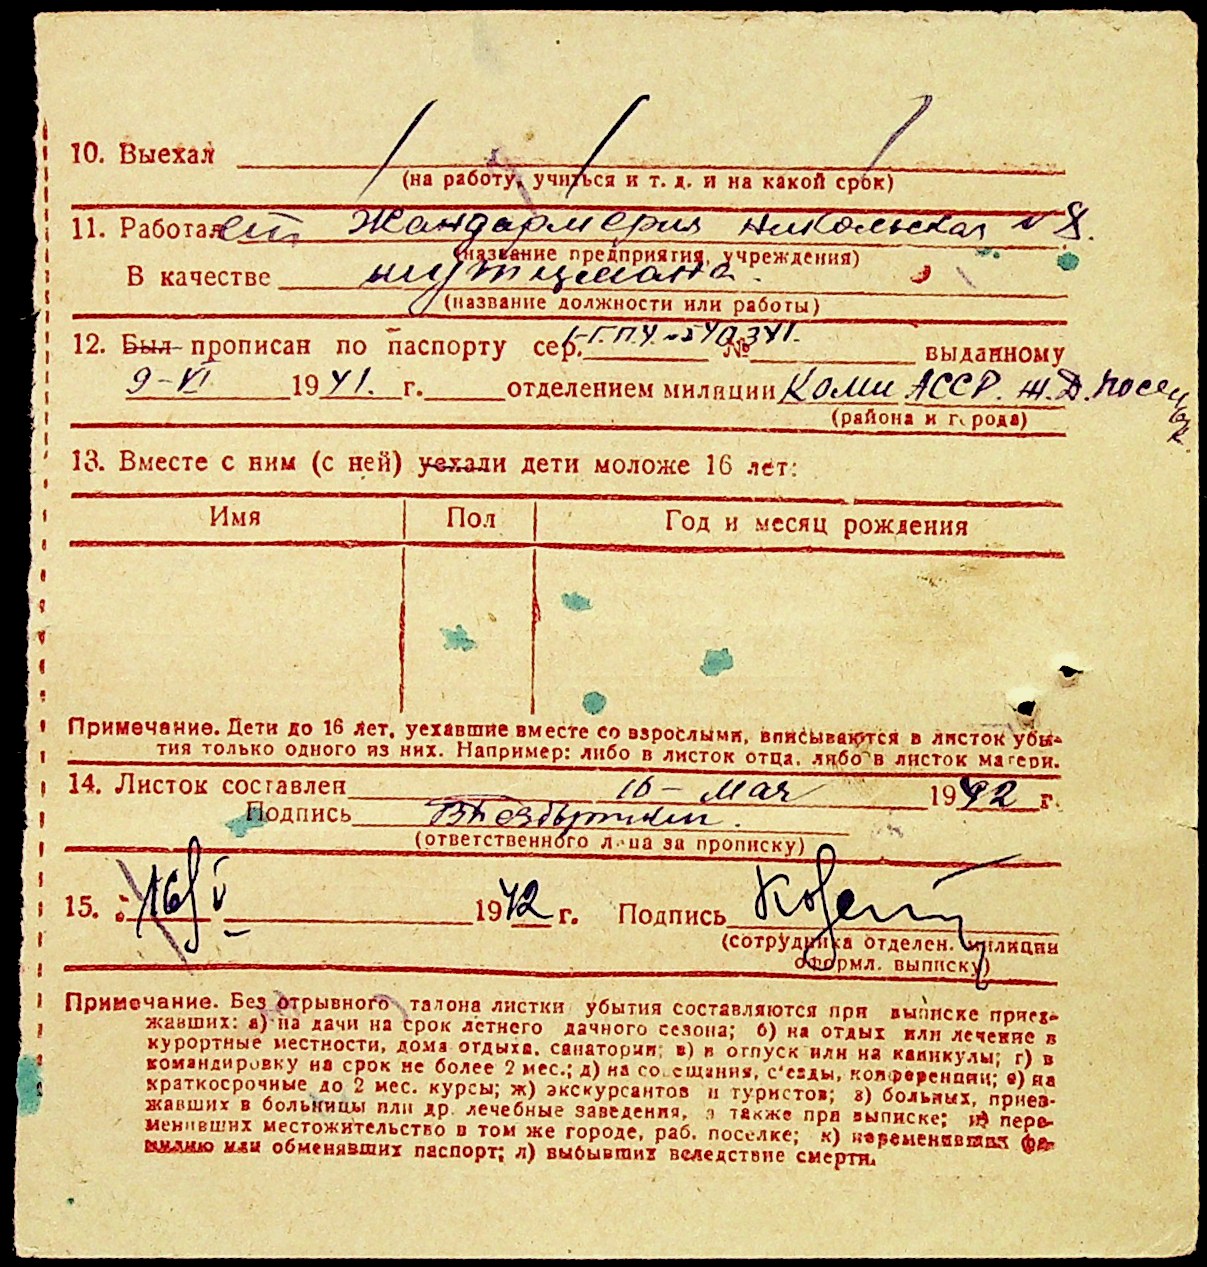 10. Выехал
(на работу, учиться и т. д. и на какой срок)
11. Работает Жандармерия Никольская № 8.
(название предприятия, учреждения)
В качестве шутцмана.
(название должности или работы)
12. Был прописан по паспорту сер. №540341. № выданному
9-VI 1941. г. отделением милиции Коми АССР. ж.д. поселок.
(района и города)
13. Вместе с ним (с ней) уехали дети моложе 16 лет:
Имя Пол Год и месяц рождения
Примечание. Дети до 16 лет, уехавшие вместе со взрослыми, вписываются в листок убы-
тия только одного из них. Например: либо в листок отца, либо в листок матери.
14. Листок составлен 16 – мая 1942 г.
Подпись
(ответственного лица за прописку)
15. 16/V 1942 г. Подпись
(сотрудника отделен. милиции
оформл. выписку)
Примечание. Без отрывного талона листки убытия составляются при выписке приез-
жавших: а) на дачи на срок летнего дачного сезона; б) на отдых или лечение в
курортные местности, дома отдыха, санатории; в) в отпуск или на каникулы; г) в
командировку на срок не более 2 мес.; д) на совещания, с'езды, конференции; е) на
краткосрочные до 2 мес. курсы; ж) экскурсантов и туристов; з) больных, приез-
жавших в больницы или др. лечебные заведения, а также при выписке; и) пере-
менивших местожительство в том же городе, раб. поселке; к) переменивших фа-
милию или обменявших паспорт; л) выбывших вследствие смерти.